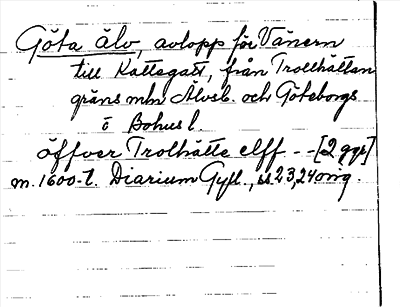 Göta älv, avlopp för Vänern
till Kattegatt, från Trollhättan
gräns mln Älvsb. och Göteborgs
o Bohusl.
öffver Trolhätte elff - - [2 ggr]
m. 1600-t. Diarium Gyll., ss 23, 24 omg.